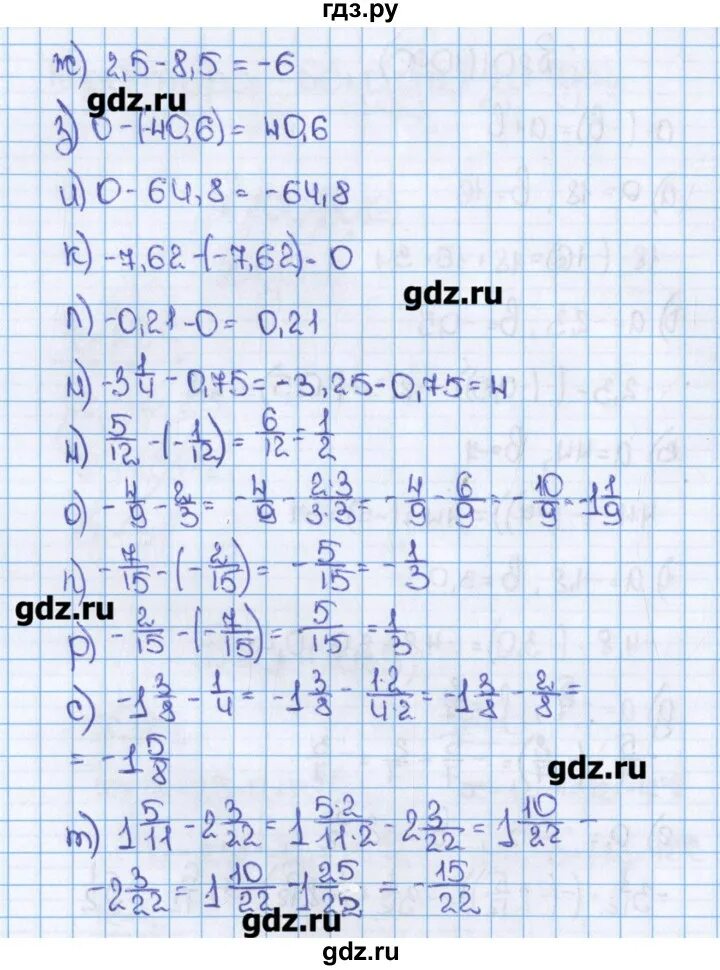 гдз.ру
ж) 2,5 - 8,5 = -6
gdz.ru
з) 0 - (-40,6) = 40,6
и) 0 - 64,8 = -64,8
к) -7,62 - (-7,62) = 0
gdz.ru
л) -0,21 - 0 = 0,21
м) -3 1/4 - 0,75 = -3,25 - 0,75 = 4
н) 5/12 - (-1/12) = 6/12 = 1/2
о) -4/9 - 2/3 = -4/9 - 2·3/3·3 = -4/9 - 6/9 = -10/9 = -1 1/9
п) -7/15 - (-2/15) = -5/15 = -1/3
gdz.ru
р) -2/15 - (-7/15) = 5/15 = 1/3
с) -1 3/8 - 1/4 = -1 3/8 - 1·2/4·2 = -1 3/8 - 2/8 =
= -1 5/8
gdz.ru
т) 1 5/11 - 2 3/22 = 1 5·2/11·2 - 2 3/22 = 1 10/22 -
- 2 3/22 = 1 10/22 - 1 25/22 = -15/22
gdz.ru
gdz.ru